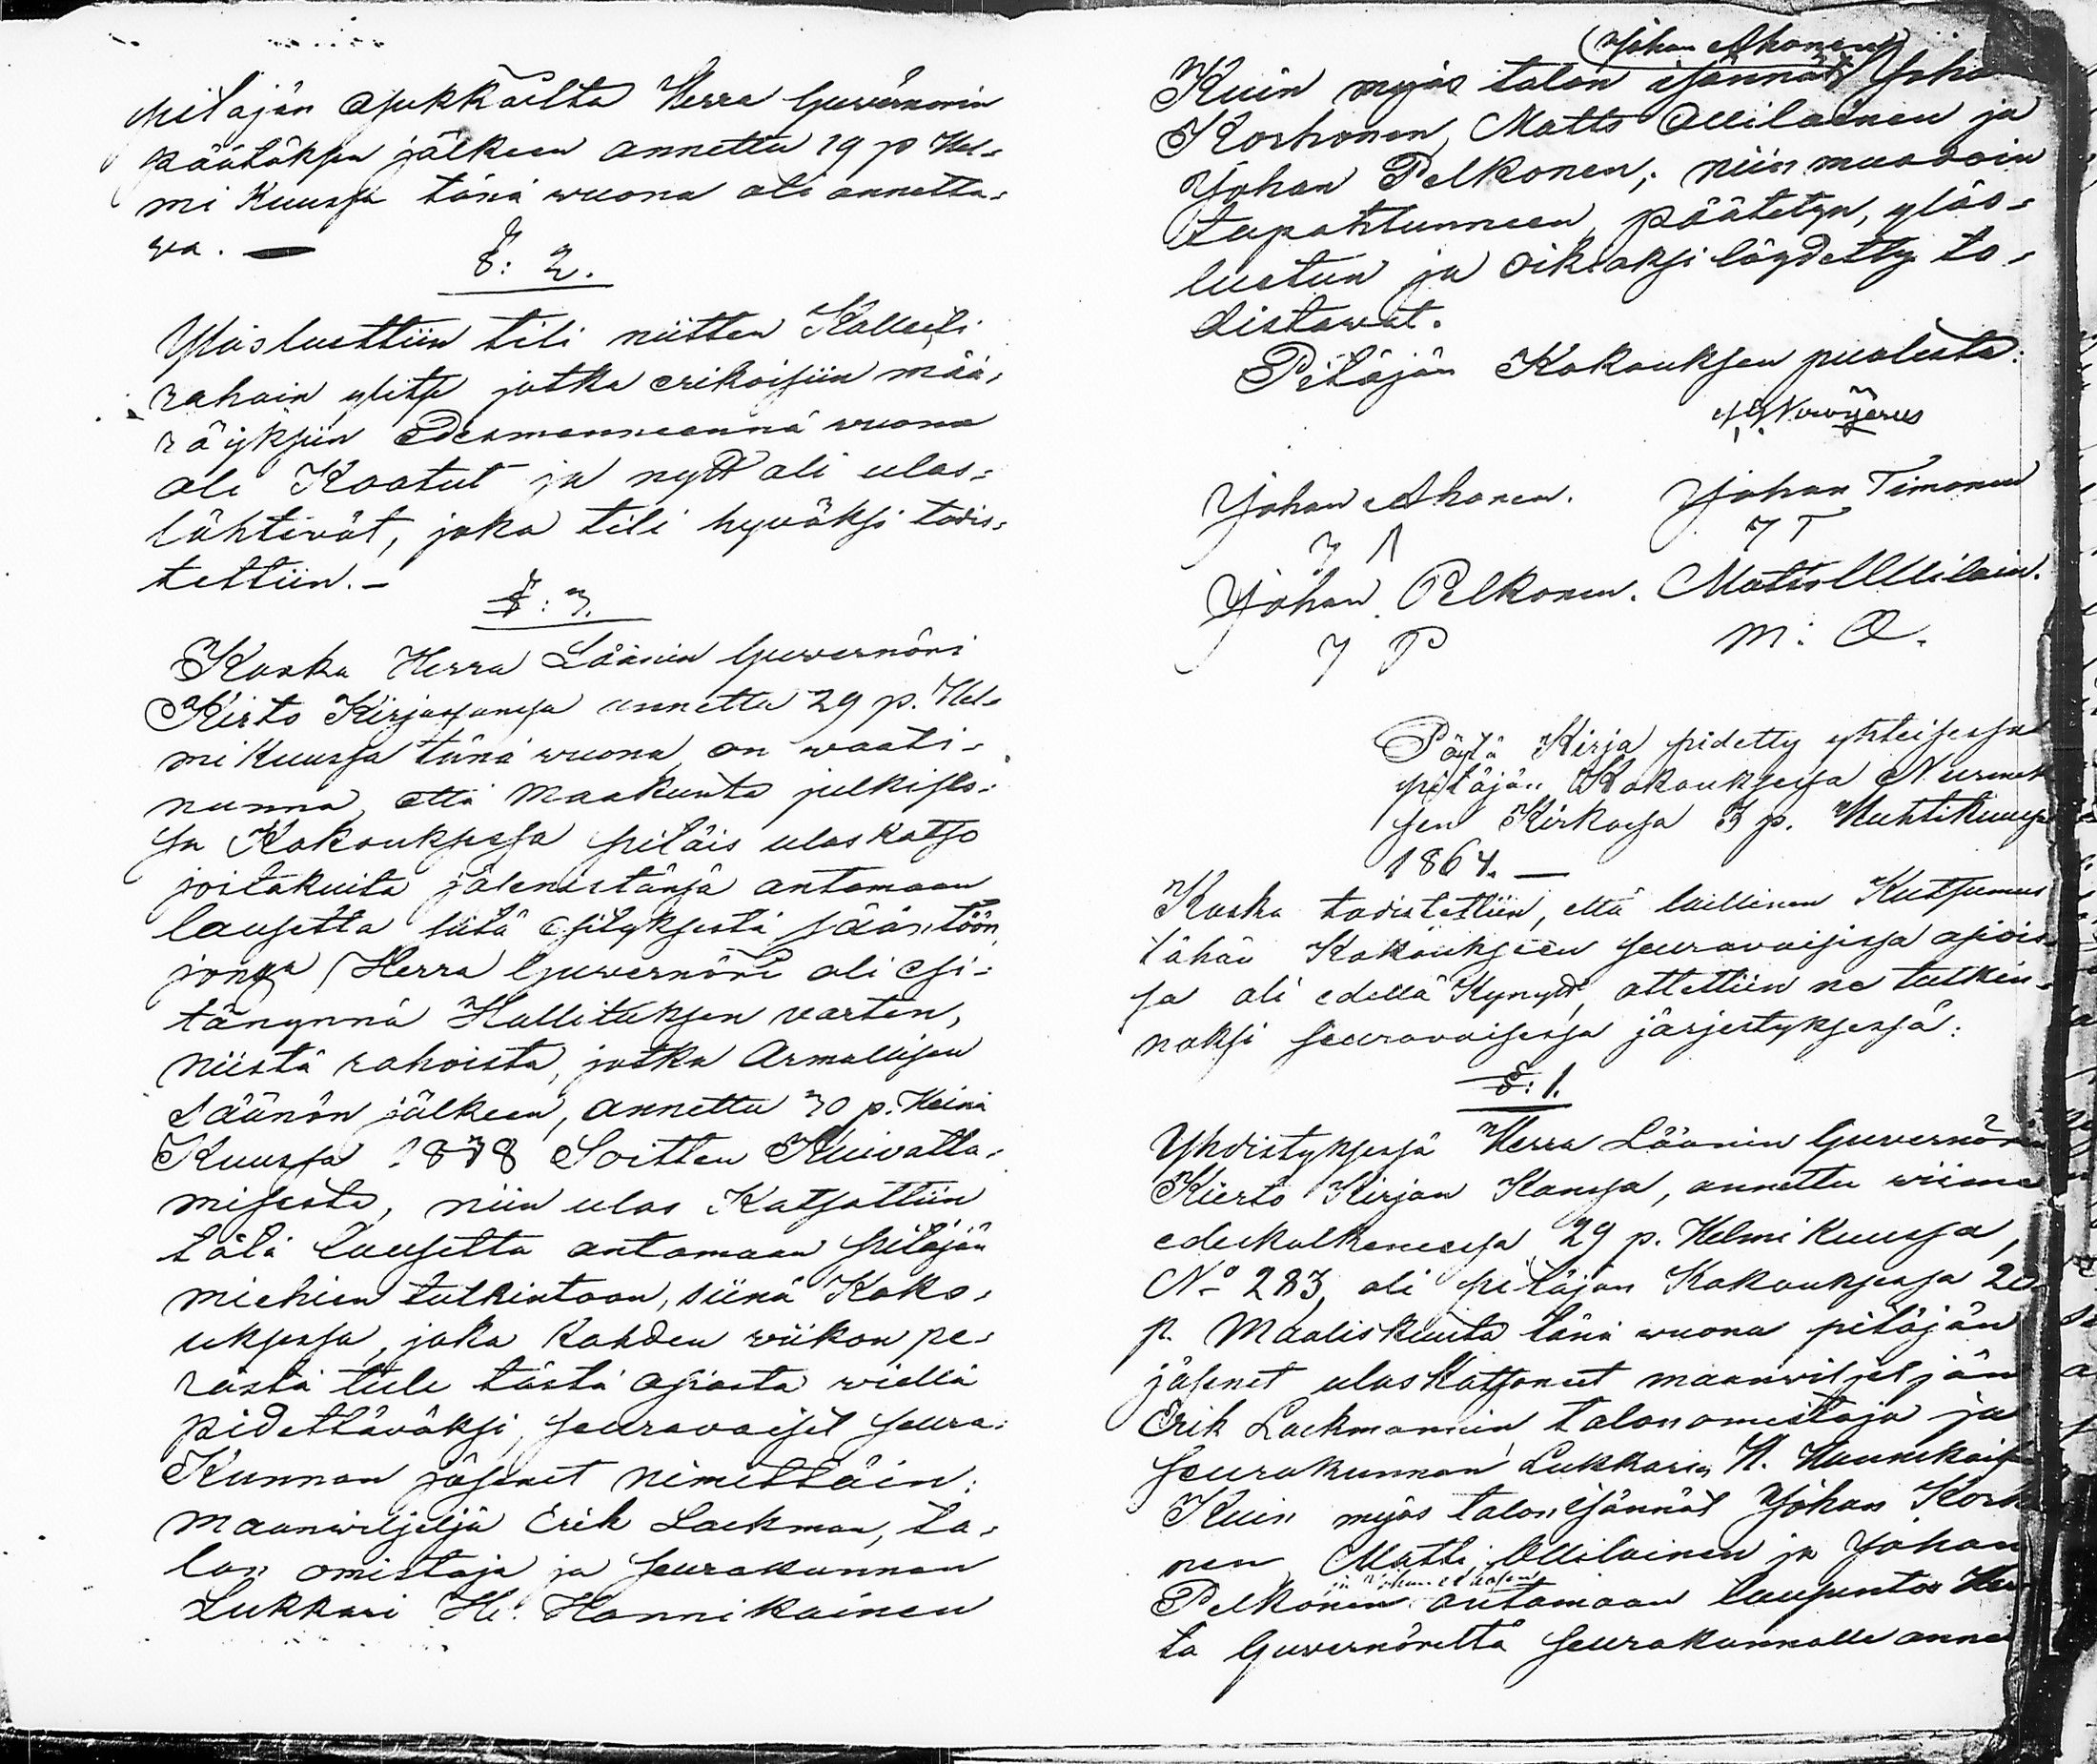 pitäjän asukkailta Herra Guvernörin
päätöksen jälkeen annettu 19 p Hel-
mi Kuussa tänä wuona oli annetta-
wa. —
§: 2.
Ylösluettiin tili niitten Kollecti
rahain ylitse jotka erikoisiin mää-
räyksiin edesmenneennä wuona
oli Kootut ja nytt oli ulos-
lähtivät, joka tili hyväksi todis-
tettiin. —
§: 3.
Koska Herra Läänin Guvernöri
Kirto Kirjassansa annettu 29 p. Hel-
mikuussa tänä wuona on waati-
nunna, että Maakunta julkises-
sa Kokouksessa pitäis uloskatso
joitakuita jäsenistänsä antamaan
lausetta siitä esityksestä sääntöön,
jonga Herra Guvernöri oli esi-
tänynnä Hallituksen varten,
niistä rahoista, jotka Armollisen
Säänön jälkeen, annettu 30 p. Heinä
Kuussa 1838 Soitten Kuivatta-
misesta, niin ulos Katsottiin
tätä lausetta antamaan pitäjän
miehien tutkintoon, siinä Koko-
uksessa, joka kahden wiikon pe-
rästä tule tästä asiasta wiellä
pidettäväksi, seuravaiset seura-
Kunnan jäsenet nimittäin:
Maanwiljeljä Erik Lackman, ta-
lon omistaja ja seurakunnan
Lukkari H: Hannikainen
(Johan Ahonen)
Kuin myös talon isännät Joha
Korhonen, Matts Ollilainen ja
Johan Pelkonen; niin muodoin
tapahtunneen, päätetyn, ylös-
luetun ja oikiaksi löydetty to-
distavat.
Pitäjän Kokouksen puolesta:
Johan Ahonen. Johan Timonen
J A J T
Johan Pelkonen. Matts Ollilain.
J P M: O.
Pöytä Kirja pidetty yhteisessä
pitäjän Kokouksessa Nurmek
sen Kirkossa 3 p. Huhtikuussa
1864. —
Koska todistettiin, että laillinen Kutsumus
tähän Kokoukseen seuravaisissa asiois-
sa oli edellä Kynytt, otettiin ne tutkin-
noksi seuravaisessa järjestyksessä:
§: 1.
Yhdistyksessä Herra Läänin Guvernörin
Kierto Kirjan Kanssa, annettu wiime
edeskulkeneessa 29 p. Helmi Kuussa,
No 283, oli pitäjän Kokouksessa 20
p. Maaliskuuta tänä wuona pitäjän
jäsenet uloskatsoneet maanwiljeljän
Erik Lackmannin, talon omistaja ja
seurakunnan Lukkarin H. Hannikais
Kuin myös talon isännät Johan Korh
nen, Matti Ollilainen ja Johan
ja Johan Ahosen
Pelkonen antamaan lausuntos Her
ta Guvernöreltä seurakunnalle anne